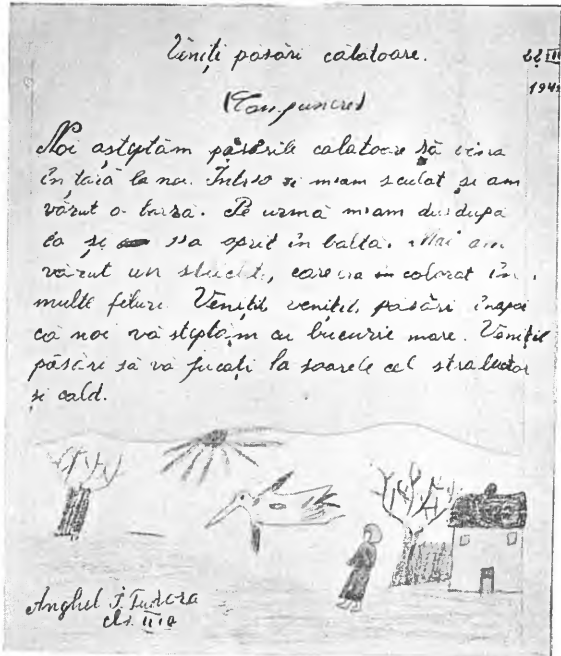 Veniți păsări călătoare.
22 III
194
Compuneri
Noi aștiptăm păsările calatoare să vina
în țară la noi. Întro zi miam sculat și am
văzut o barză. Pe urmă miam dus după
ea și sia oprit în baltă. Mai am
văzut un sticlit, care ira colorat în
multe feluri. Venițil venițil păsări înapoi
că noi vă stiptăm cu bucurie mare. Venițil
păsări să vă jucați la soarele cel stralucitor
și cald.
Anghel I. Tudora
cls. III a